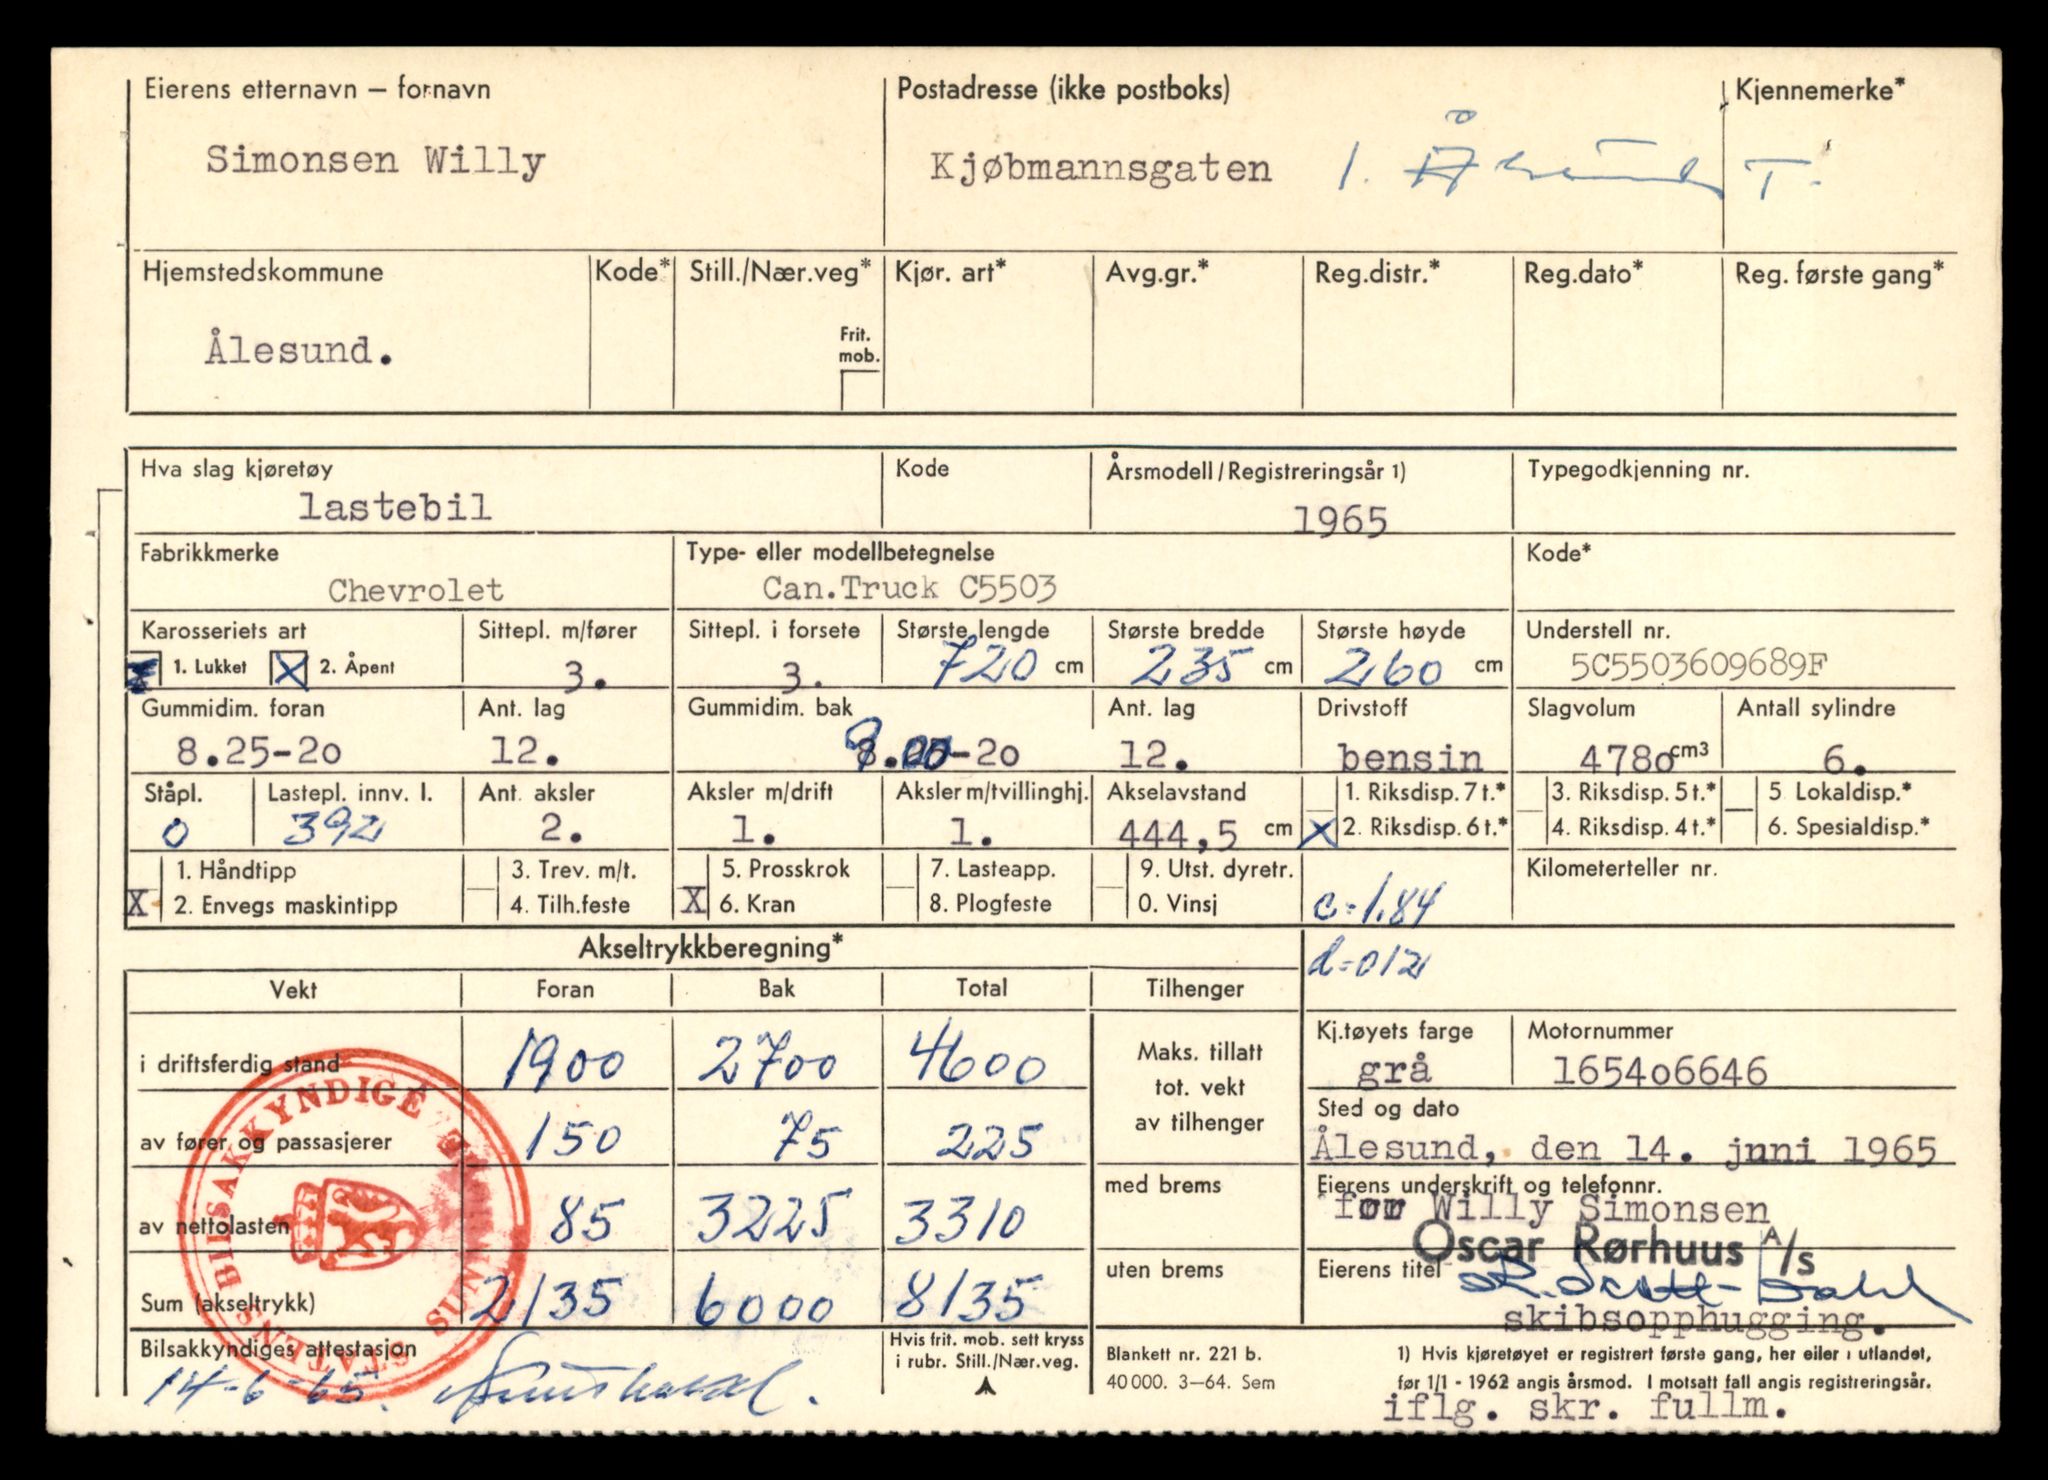 Eierens etternavn – fornavn Postadresse (ikke postboks) Kjennemerke*
Simonsen Willy Kjøbmannsgaten 1. Ålesund T.
Hjemstedskommune Kode* Still./Nær.veg* Kjør. art* Avg.gr.* Reg.distr.* Reg.dato* Reg. første gang*
Frit.
mob.
Ålesund.
Hva slag kjøretøy Kode Årsmodell/Registreringsår 1) Typegodkjenning nr.
lastebil 1965
Fabrikkmerke Type- eller modellbetegnelse Kode*
Chevrolet Can.Truck C5503
Karosseriets art Sittepl. m/fører Sittepl. i forsete Største lengde Største bredde Største høyde Understell nr.
X 1. Lukket X 2. Åpent 3. 3. 720 cm 235 cm 260 cm 5C5503609689F
Gummidim. foran Ant. lag Gummidim. bak Ant. lag Drivstoff Slagvolum Antall sylindre
8.25-20 12. 9.00-20 12. bensin 4780 cm3 6.
Ståpl. Lastepl. innv. l. Ant. aksler Aksler m/drift Aksler m/tvillinghj. Akselavstand 1. Riksdisp. 7 t.* 3. Riksdisp. 5 t.* 5 Lokaldisp.*
0 392 2. 1. 1. 444,5 cm X 2. Riksdisp. 6 t.* 4. Riksdisp. 4 t.* 6. Spesialdisp.*
1. Håndtipp 3. Trev. m/t. 5. Prosskrok 7. Lasteapp. 9. Utst. dyretr. Kilometerteller nr.
X 2. Envegs maskintipp 4. Tilh.feste X 6. Kran 8. Plogfeste 0. Vinsj c=1.84
Akseltrykkberegning* d=012
Vekt Foran Bak Total Tilhenger
i driftsferdig stand 1900 2700 4600
Maks. tillatt
tot. vekt
av tilhenger
Kj.tøyets farge Motornummer
grå 165406646
Sted og dato
av fører og passasjerer 150 75 225
Ålesund, den 14. juni 1965
med brems Eierens underskrift og telefonnr.
av nettolasten 85 3225 3310
for Willy Simonsen
Oscar Rørhuus A/s
uten brems Eierens titel
Sum (akseltrykk) 2135 6000 8135
skibsopphugging.
STATENS BILSAKKYNDIGE
Bilsakkyndiges attestasjon
14-6-65.
Hvis frit. mob. sett kryss
i rubr. Still./Nær.veg.
Blankett nr. 221 b.
40 000. 3–64. Sem
1) Hvis kjøretøyet er registrert første gang, her eller i utlandet,
før 1/1 - 1962 angis årsmod. I motsatt fall angis registreringsår.
iflg. skr. fullm.